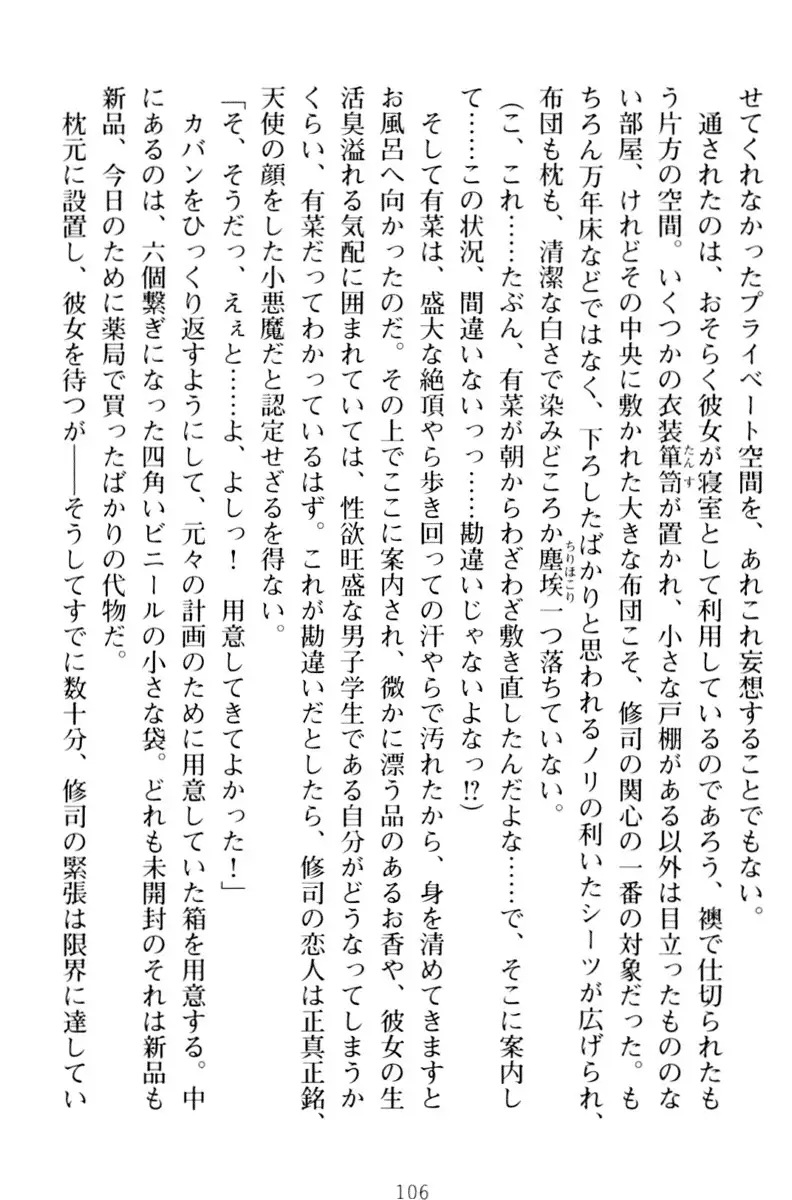 せてくれなかったプライベート空間を、あれこれ妄想することでもない。
　通されたのは、おそらく彼女が寝室として利用しているのであろう、襖で仕切られたも
う片方の空間。いくつかの衣装箪笥が置かれ、小さな戸棚がある以外は目立ったもののな
たんす
い部屋、けれどその中央に敷かれた大きな布団こそ、修司の関心の一番の対象だった。も
ちろん万年床などではなく、下ろしたばかりと思われるノリの利いたシーツが広げられ、
布団も枕も、清潔な白さで染みどころか塵埃一つ落ちていない。
ちりほこり
（こ、これ……たぶん、有菜が朝からわざわざ敷き直したんだよな……で、そこに案内し
て……この状況、間違いないっっ……勘違いじゃないよなっ!?）
　そして有菜は、盛大な絶頂やら歩き回っての汗やらで汚れたから、身を清めてきますと
お風呂へ向かったのだ。その上でここに案内され、微かに漂う品のあるお香や、彼女の生
活臭溢れる気配に囲まれていては、性欲旺盛な男子学生である自分がどうなってしまうか
くらい、有菜だってわかっているはず。これが勘違いだとしたら、修司の恋人は正真正銘、
天使の顔をした小悪魔だと認定せざるを得ない。
「そ、そうだっ、えぇと……よ、よしっ！　用意してきてよかった！」
　カバンをひっくり返すようにして、元々の計画のために用意していた箱を用意する。中
にあるのは、六個繋ぎになった四角いビニールの小さな袋。どれも未開封のそれは新品も
新品、今日のために薬局で買ったばかりの代物だ。
　枕元に設置し、彼女を待つが――そうしてすでに数十分、修司の緊張は限界に達してい
106